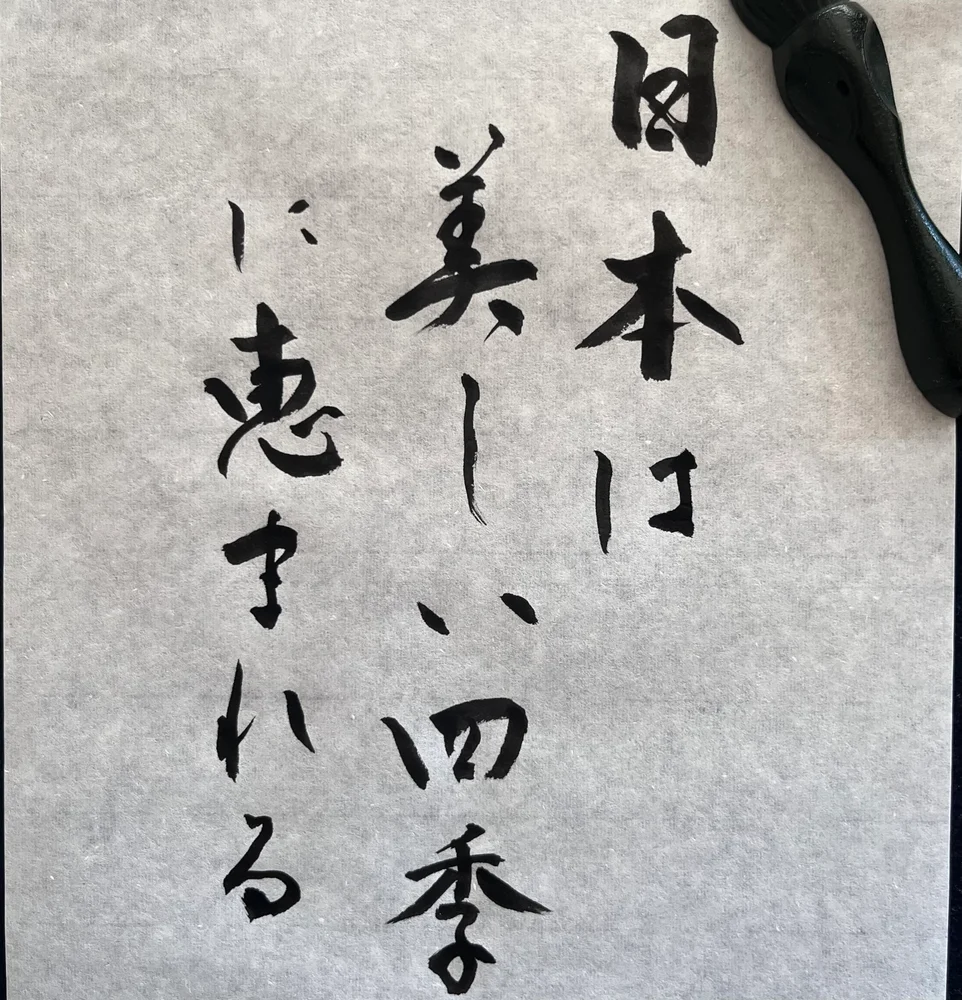 日本は
美しい四季
に恵まれる